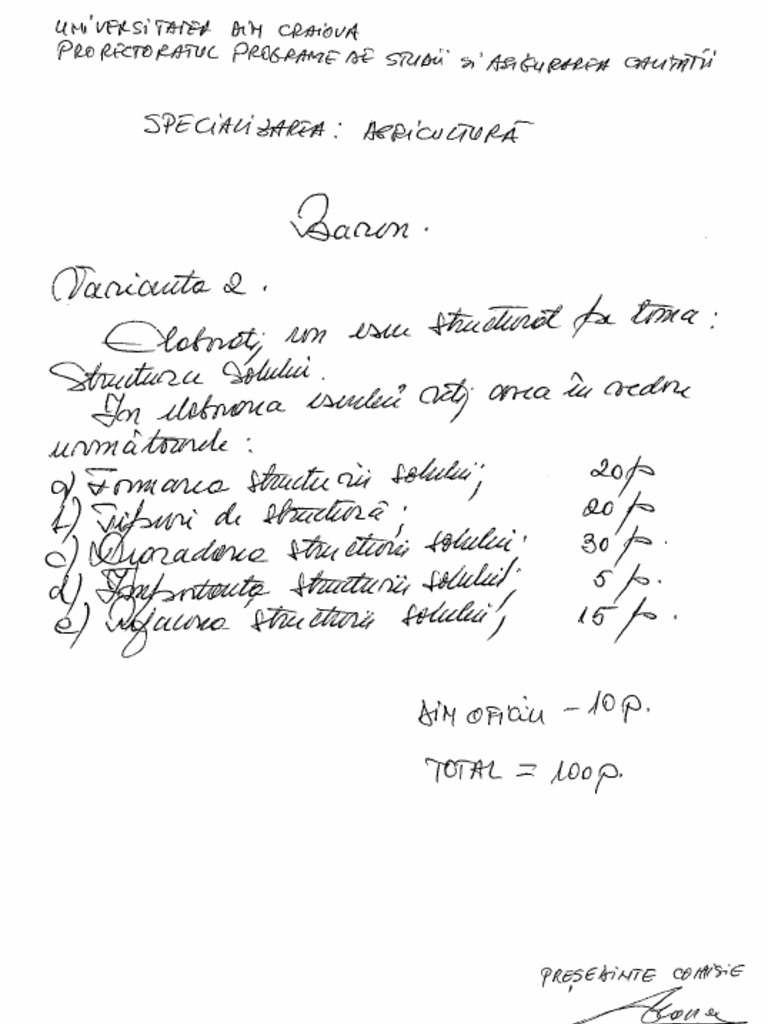 UNIVERSITATEA DIN CRAIOVA
PRORECTORATUL PROGRAME DE STUDII SI ASIGURAREA CALITĂȚII
SPECIALIZAREA: AGRICULTURĂ
Barem.
Varianta 2.
Elaborați un eseu structurat pe tema:
Structura solului.
In elaborarea eseului veți avea în vedere
următoarele:
a) Formarea structurii solului; 20p
b) Tipuri de structură; 20p.
c) Degradarea structurii solului; 30p.
d) Importanța structurii solului; 5p.
e) Refacerea structurii solului; 15p.
DIN OFICIU - 10p.
TOTAL = 100p.
PREȘEDINTE COMISIE